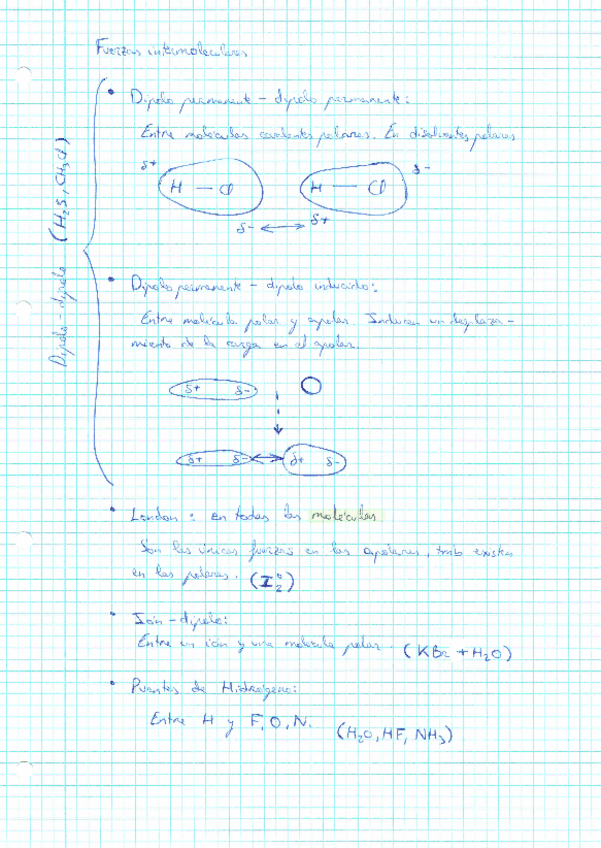 Fuerzas intermoleculares
Dipolo - dipolo (H2S, CH3Cl)
• Dipolo permanente - dipolo permanente:
Entre moléculas covalentes polares. En disolventes polares
δ+ δ-
H — Cl H — Cl
δ- ⟷ δ+
• Dipolo permanente - dipolo inducido:
Entre molécula polar y apolar. Inducen un desplaza-
miento de la carga en el apolar.
δ+ δ-
δ+ δ- ⟷ δ+ δ-
• London: en todas las moléculas
Son las únicas fuerzas en las apolares, tmb existen
en las polares. (I2)
• Ión - dipolo:
Entre un ión y una molécula polar. (KBr + H2O)
• Puentes de Hidrógeno:
Entre H y F, O, N. (H2O, HF, NH3)